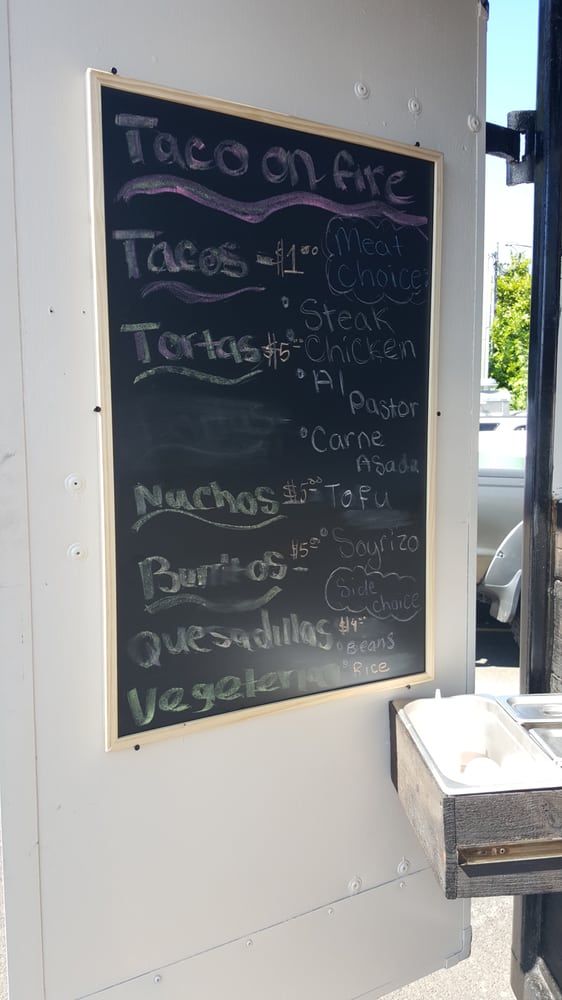 Taco on fire
Tacos - $1.00
Meat
Choice
Steak
Tortas $5
Chicken
Al
Pastor
Carne
Asada
Nachos $5.00
Tofu
Burritos $5.00
Soyrizo
Side
choice
Quesadillas $4
Beans
Rice